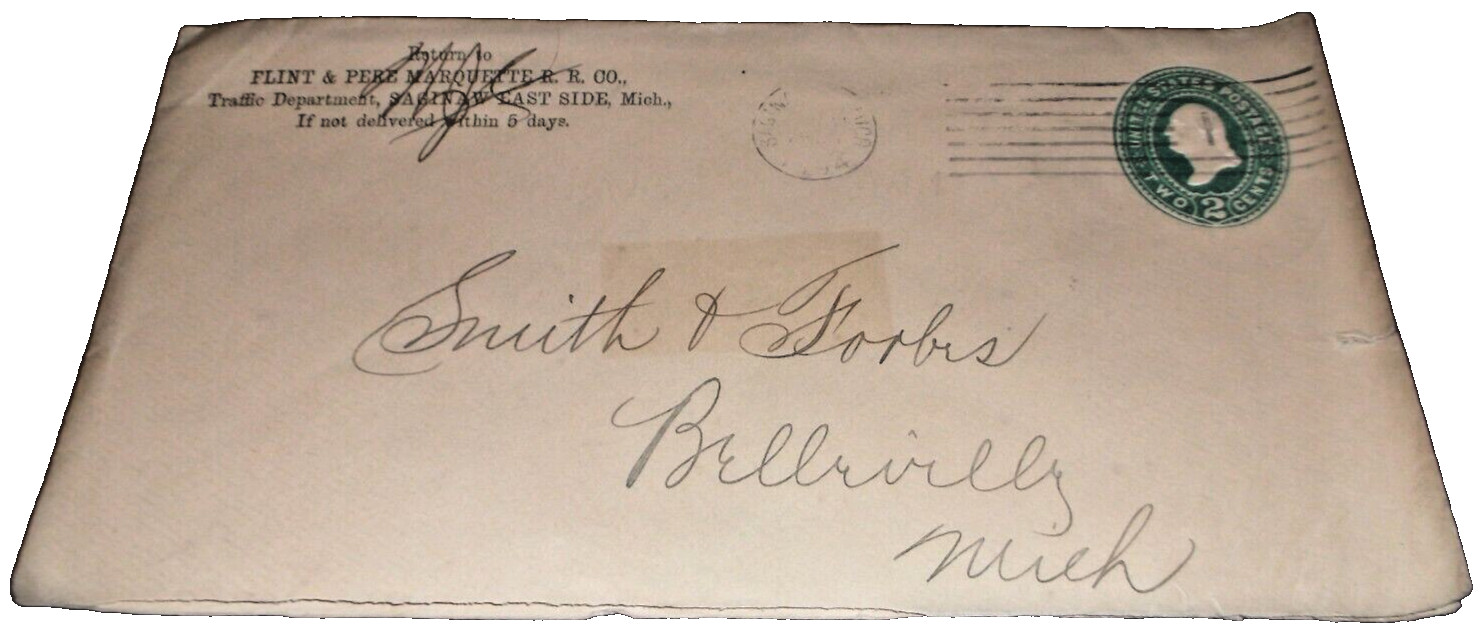 Return to
FLINT & PERE MARQUETTE R. R. CO.,
Traffic Department, SAGINAW EAST SIDE, Mich.,
If not delivered within 5 days.
UNITED STATES POSTAGE
TWO 2 CENTS
Smith & Forbes
Belleville
Mich